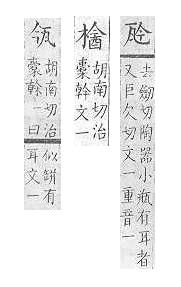 去劒切陶器小瓶有耳者
又巨欠切文一重音一
胡南切治
橐榦文一
胡南切治
橐榦一曰
似缾有
耳文一